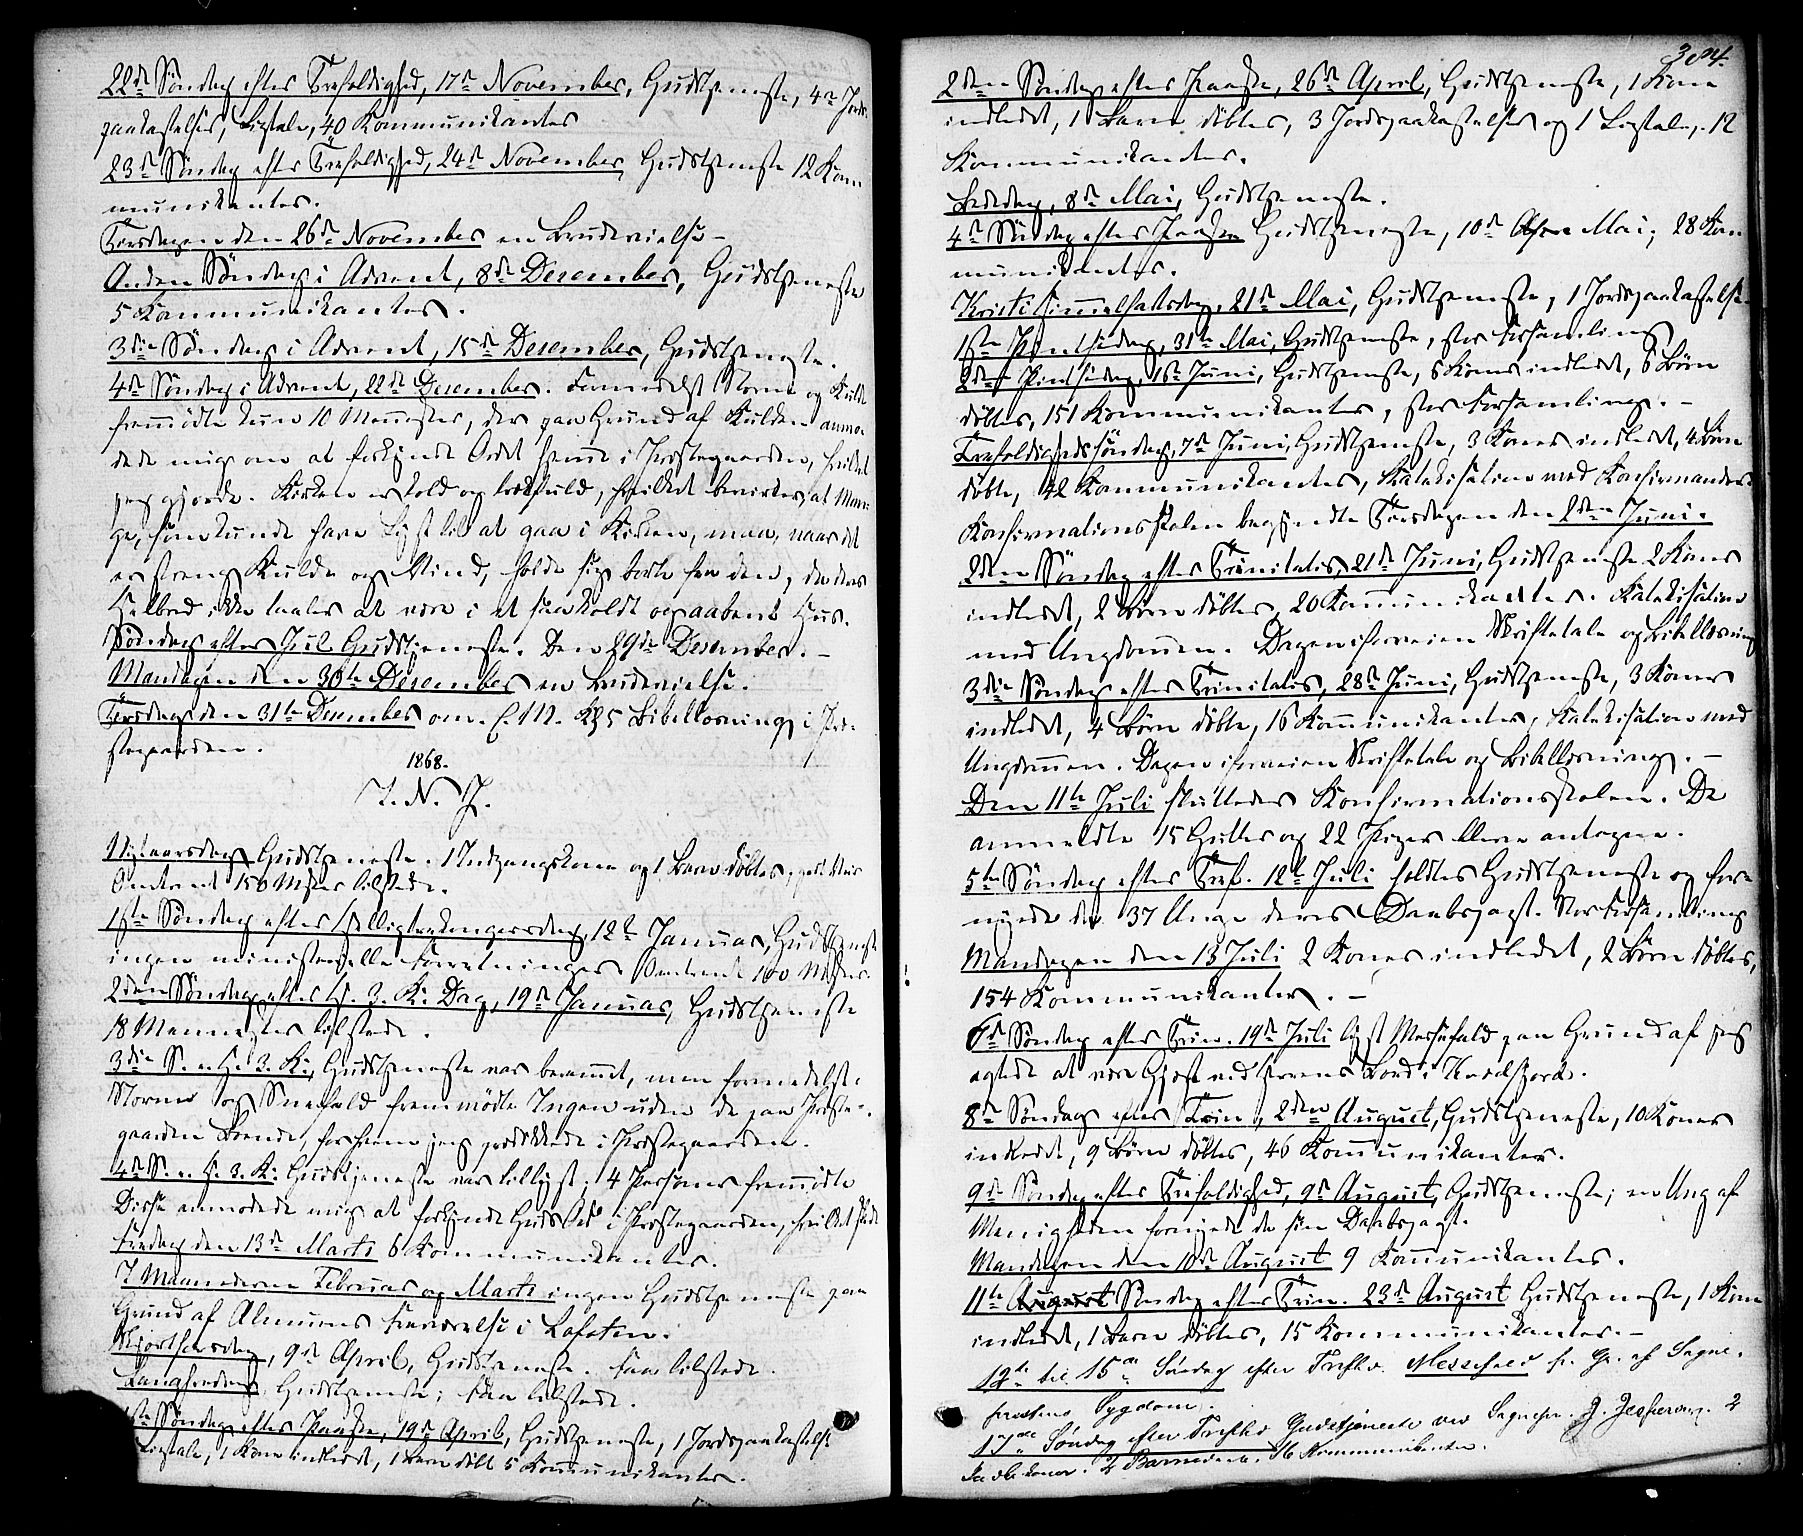 22de Søndag efter Trefoldighed, 17de November, Gudstjeneste, 4re Jords-
paakastelser, Ligtale, 40 Kommunikanter
23de Søndag efter Trefoldighed, 24de November, Gudstjeneste 12 Kom
munikanter.
Torsdagen den 26de November en Brudevielse –
Anden Søndag i Advent, 8de Desember, Gudstjeneste
5 Kommunikanter.
3die Søndag i Advent, 15de Desember, Gudstjeneste.
4de Søndag i Advent, 22de Desember. Formedelst Storm og Kulde
fremmødte kun 10 Mennesker, der paa Grund af Kulden anmo
dede mig om at forkynde Ordet hjemme i Prestegaarden, hvilket
jeg gjorde. Kirken er kold og trækfuld, hvilket bevirker, at Man-
ge, som kunde have Lyst til at gaa i Kirken, maa, naar det
er streng Kulde og Vind, holde sig borte fra den, da deres
Helbred ikke taaler at være i et saa koldt og aabent Huus.
Søndag efter Jul Gudstjeneste. Den 29de Desember. –
Mandagen den 30te Desember en Brudevielse.
Tirsdag den 31te Desember om E. M. Kl 5 Bibellæsning i Pre-
stegaarden.
1868.
I. N. J.
Nytaarsdag Gudstjeneste. 1 Indgangskone og 1 Barn døbtes,
Omtrent 150 Msker tilstede.
1ste Søndag efter Helligtrekongersdag, 12te Januar, Gudstjeneste
ingen ministerielle Forretninger Omtrent 100 Msker.
2den Søndag efter H. 3. K. Dag, 19de Januar, Gudstjeneste
18 Mennesker tilstede.
3die S. e. H. 3. K., Gudstjeneste var berammet, men formedelst
Storm og Snefald fremmødte Ingen uden de paa Preste-
gaarden Boende, for hvem jeg prædikede i Prestegaarden.
4de S. e. H. 3. K. Gudstjeneste var tillyst; 4 Personer fremmødte
Disse anmodede mig at forkynde Guds Ord i Prestegaarden, hvilket skede
Fredag den 13de Marts 6 Kommunikanter.
I Maanederne Februar og Marts ingen Gudstjeneste paa
Grund af Almuens Fraværelse i Lofoten.
Skjærthorsdag, 9de April, Gudstjeneste. Faa tilstede.
Langfredag, Gudstjeneste; Faa tilstede.
1ste Søndag efter Paaske, 19de April, Gudstjeneste, 1 Jordspaakastelse
Ligtale, 1 Kone indledet, 1 Barn døbt 5 Kommunikanter.
304.
2den Søndag efter Paaske, 26de April, Gudstjeneste, 1 Kone
indledet, 1 Barn døbtes, 3 Jordspaakastelser og 1 Ligtale, 12
Kommunikanter.
Bededag, 8de Mai, Gudstjeneste.
4de Søndag efter Paaske Gudstjeneste, 10de Mai, 28 Kom
munikanter.
Kristi Himmelfartsdag, 21de Mai, Gudstjeneste, 1 Jordspaakastelse.
1ste Pintsedag, 31te Mai, Gudstjeneste, stor Forsamling
2den Pintsedag, 1ste Juni, Gudstjeneste, 6 Koner indledet, 6 Børn
døbtes, 151 Kommunikanter, stor Forsamling. –
Trefoldighedssøndag, 7de Juni, Gudstjeneste, 3 Koner indledet, 4 Børn
døbte, 42 Kommunikanter, Katekisation med Konfirmander.
Konfirmationsskolen begyndte Torsdagen den 2den Juni.
2den Søndag efter Trinitatis, 21de Juni, Gudstjeneste 2 Koner
indledet, 2 Børn døbtes, 20 Kommunikanter. Katekisation
med Ungdommen. Dagen iforveien Skriftetale og Bibellæsning
3die Søndag efter Trinitatis, 28de Juni, Gudstjeneste, 3 Koner
indledet, 4 Børn døbte, 16 Kommunikanter, Katekisation med
Ungdommen. Dagen iforveien Skriftetale og Bibellæsning. –
Den 11te Juli sluttedes Konfirmationsskolen. De
anmeldte 15 Gutter og 22 Piger bleve antagne.
5te Søndag efter Tref. 12te Juli holdtes Gudstjeneste og for-
nyede de 37 Unge deres Daabspagt. Stor Forsamling
Mandagen den 13 Juli 2 Koner indledet, 2 Børn døbtes,
154 Kommunikanter. –
6te Søndag efter Trin. 19de Juli lyst Messefald paa Grund af jeg
agtede at være Gjest ved Herrens Bord i Kvedfjord.
8de Søndag efter Trin, 2den August, Gudstjeneste, 10 Koner
indledet, 9 Børn døbtes, 46 Kommunikanter.
9de Søndag efter Trefoldighed, 9de August, Gudstjeneste; en Ung af
Menigheden fornyede sin Daabspagt.
Mandagen den 10de August 9 Kommunikanter.
11te August Søndag efter Trin. 23de August Gudstjeneste, 1 Kone
indledet, 1 Barn døbtes, 15 Kommunikanter. –
12te til 15de Søndag efter Trefold. Messefald p. Gr. af Sogne-
prestens Sygdom.
17de Søndag efter Trefold Gudstjeneste ved Sognepr. J. Jespersen. 2
Barnedaab. 16 Kommunikanter.